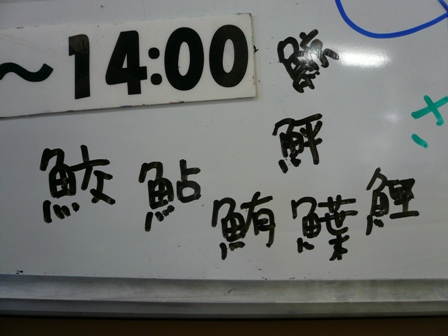 ～14:00
鮃
鮫 鮎 鮪 鰈 鯉